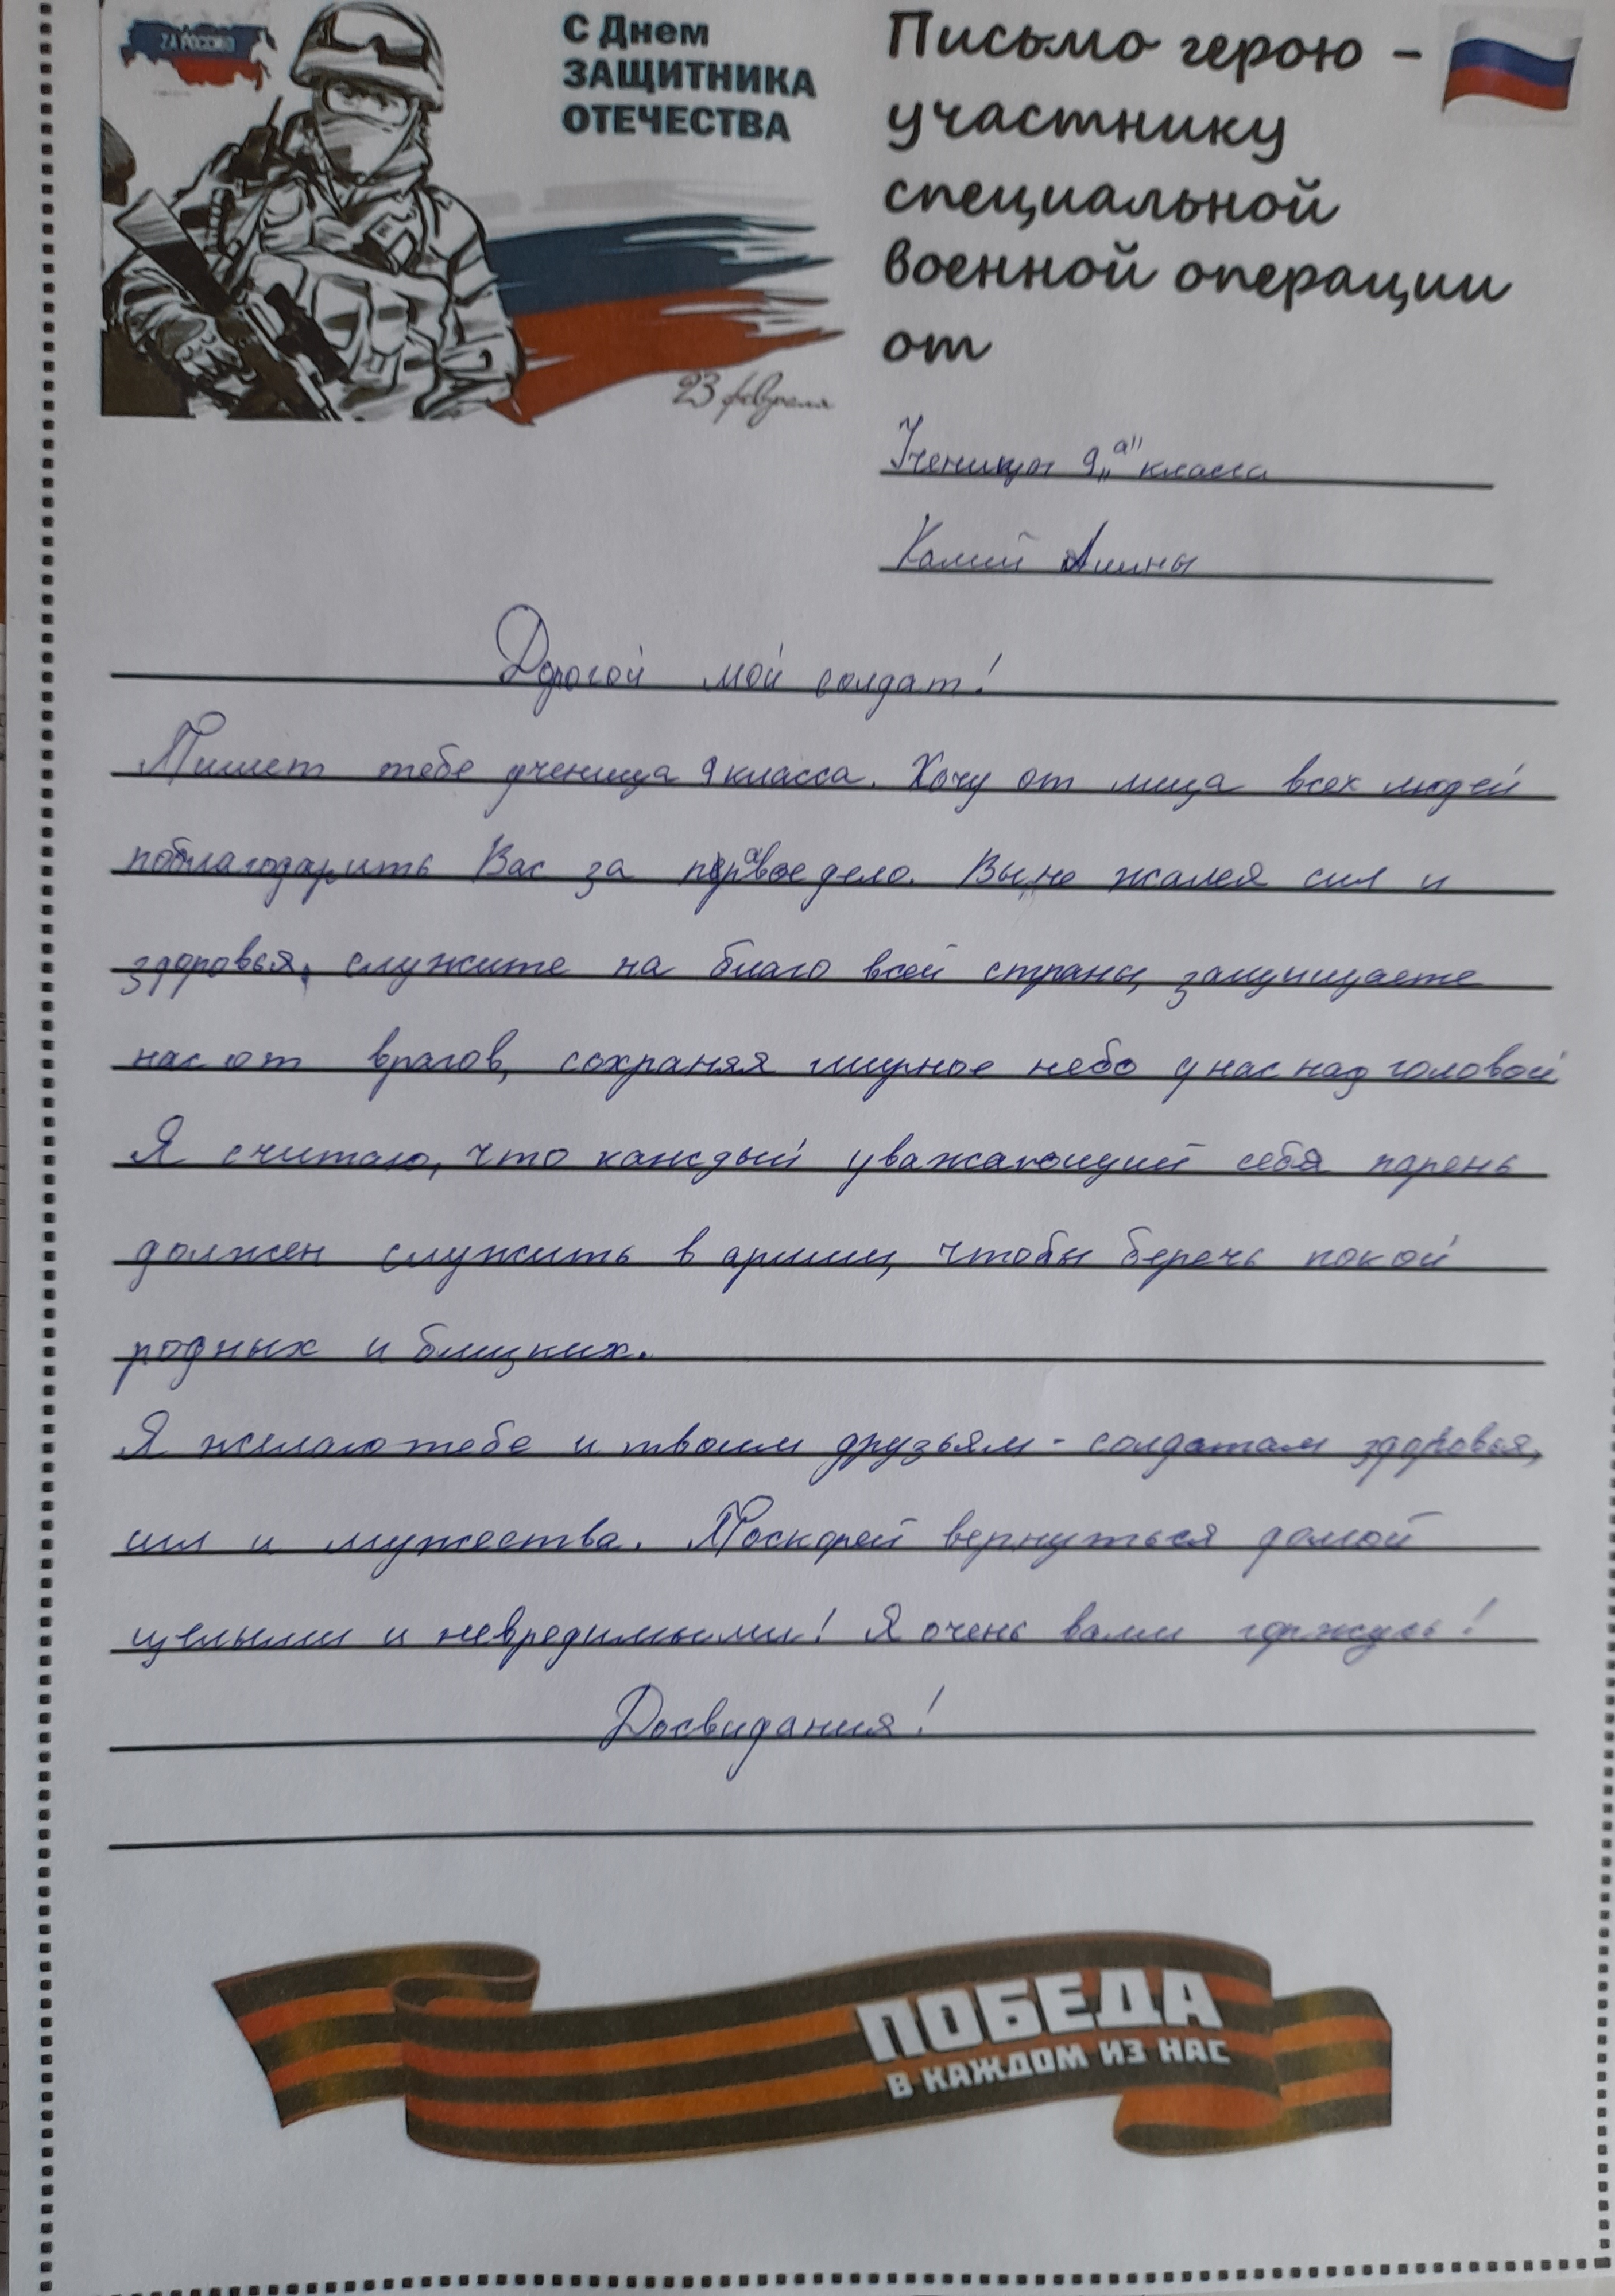 ZA РОССИЮ
С Днем
ЗАЩИТНИКА
ОТЕЧЕСТВА
23 февраля
Письмо герою –
участнику
специальной
военной операции
от
Ученицы 9 „а" класса
Камий
Дорогой мой солдат!
Пишет тебе ученица 9 класса. Хочу от лица всех людей
поблагодарить Вас за правое дело. Вы, не жалея сил и
здоровья, служите на благо всей страны, защищаете
нас от врагов, сохраняя мирное небо у нас над головой
Я считаю, что каждый уважающий себя парень
должен служить в армии, чтобы беречь покой
родных и близких.
Я желаю тебе и твоим друзьям - солдатам здоровья,
сил и мужества. Поскорей вернуться домой
целыми и невредимыми! Я очень вами горжусь!
Досвидания!
ПОБЕДА
В КАЖДОМ ИЗ НАС